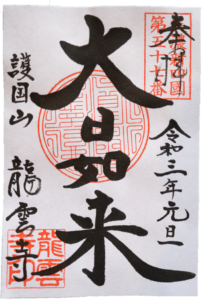 奉拝
第五十七番
大日如来
令和三年元旦
護国山
龍雲寺
龍雲寺印